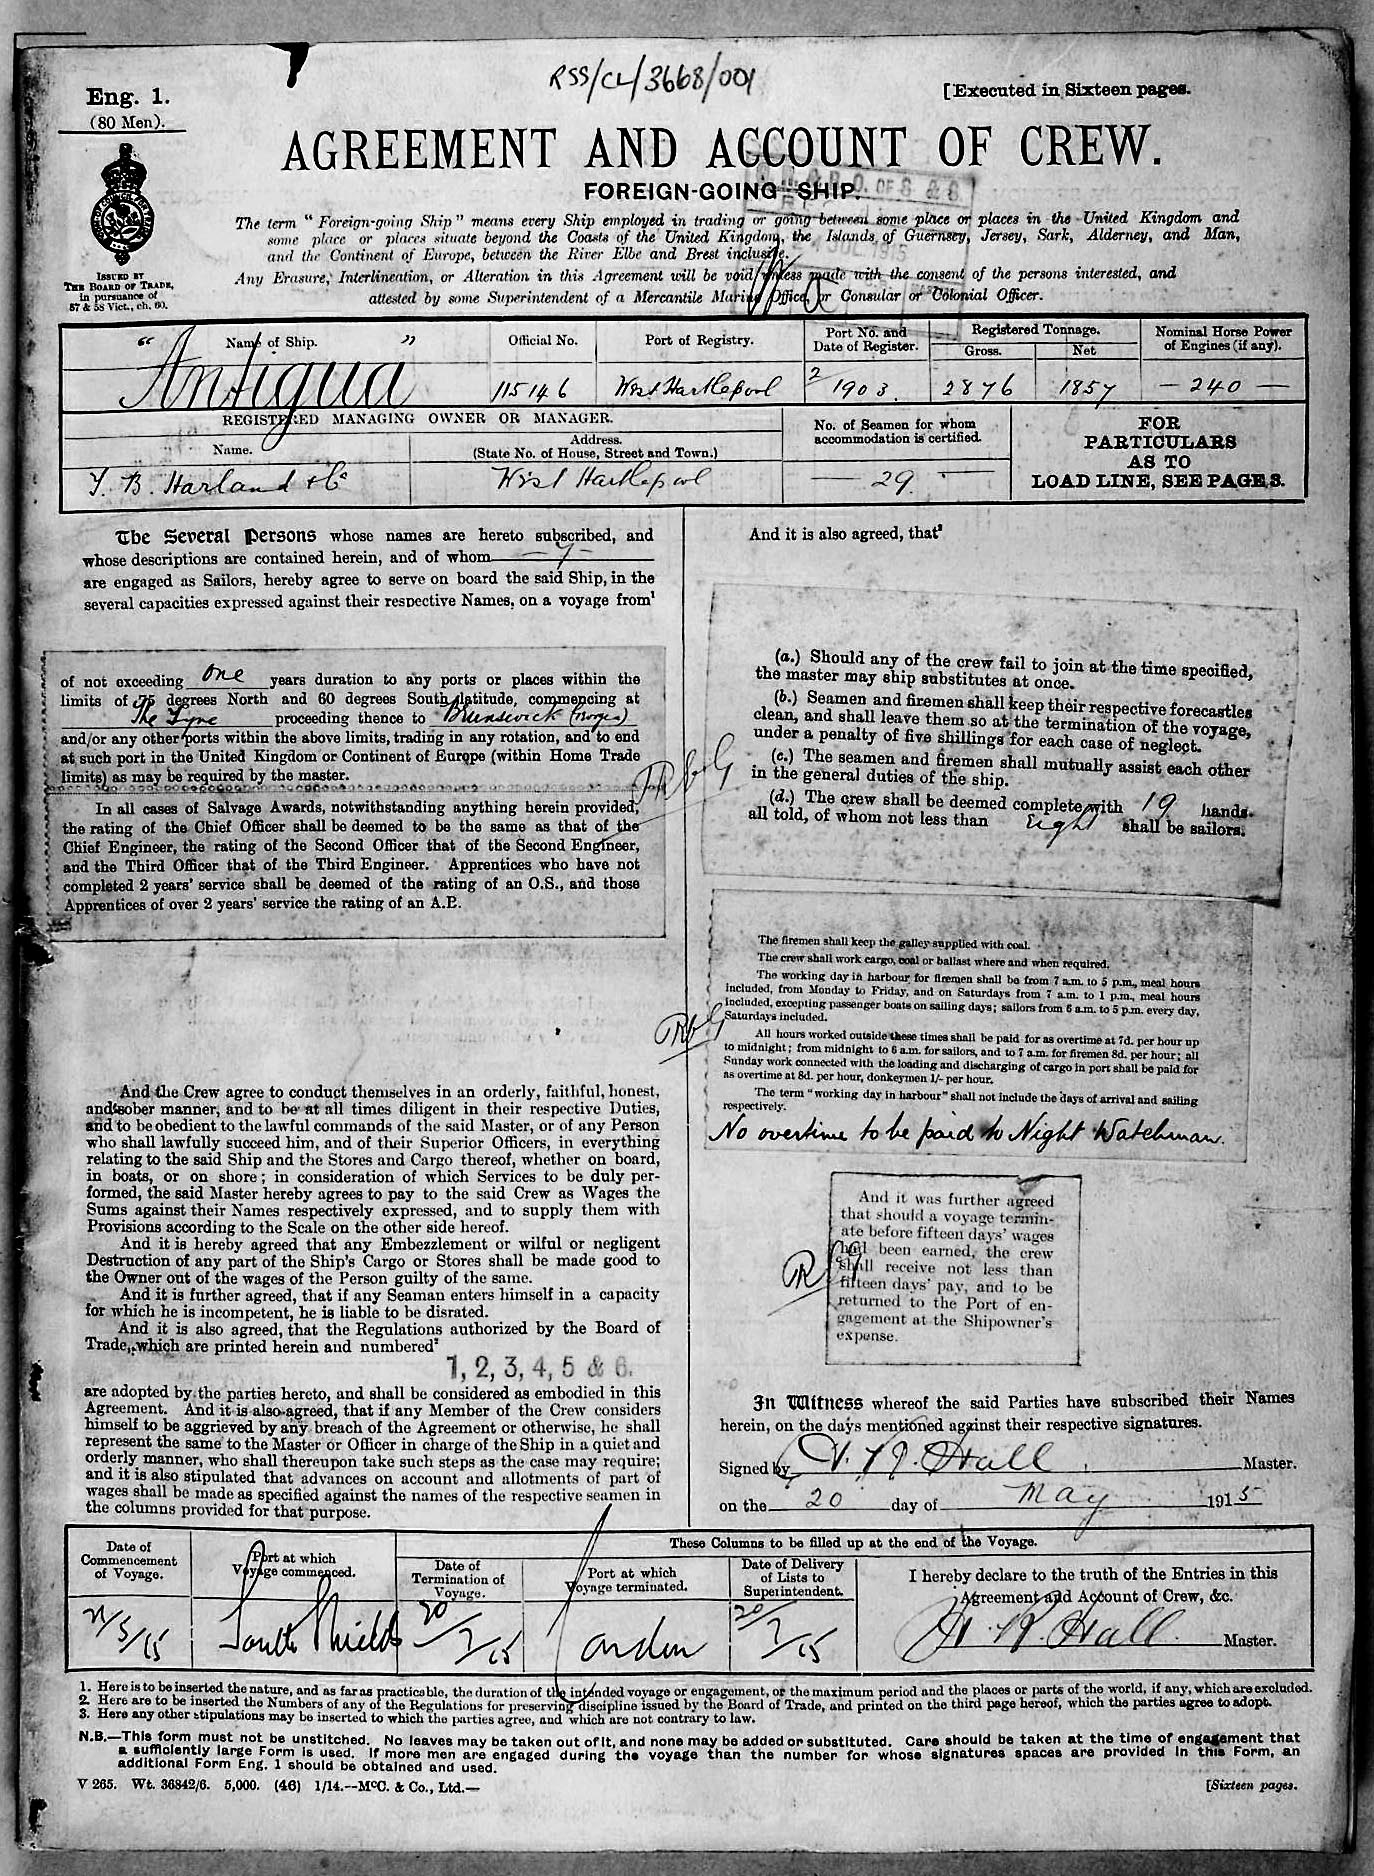 RSS/CL/3668/001
Eng. 1.
(80 Men).
[Executed in Sixteen pages.
AGREEMENT AND ACCOUNT OF CREW.
FOREIGN-GOING SHIP.
ISSUED BY
THE BOARD OF TRADE,
in pursuance of
57 & 58 Vict., ch. 60.
The term "Foreign-going Ship" means every Ship employed in trading or going between some place or places in the United Kingdom and
some place or places situate beyond the Coasts of the United Kingdom, the Islands of Guernsey, Jersey, Sark, Alderney, and Man,
and the Continent of Europe, between the River Elbe and Brest inclusive.
Any Erasure, Interlineation, or Alteration in this Agreement will be void unless made with the consent of the persons interested, and
attested by some Superintendent of a Mercantile Marine Office, or Consular or Colonial Officer.
Name of Ship.
Official No.
Port of Registry.
Port No. and
Date of Register.
Registered Tonnage.
Gross.
Net
Nominal Horse Power
of Engines (if any).
"Antigua"
115146
West Hartlepool
2
1903.
2876
1857
— 240 —
REGISTERED MANAGING OWNER OR MANAGER.
Name.
Address.
(State No. of House, Street and Town.)
No. of Seamen for whom
accommodation is certified.
FOR
PARTICULARS
AS TO
LOAD LINE, SEE PAGE 3.
B. Harland & Co
West Hartlepool
— 29. —
The Several Persons whose names are hereto subscribed, and
whose descriptions are contained herein, and of whom — 7 —
are engaged as Sailors, hereby agree to serve on board the said Ship, in the
several capacities expressed against their respective Names, on a voyage from¹
of not exceeding one years duration to any ports or places within the
limits of 75 degrees North and 60 degrees South latitude, commencing at
The Tyne proceeding thence to Brunswick
and/or any other ports within the above limits, trading in any rotation, and to end
at such port in the United Kingdom or Continent of Europe (within Home Trade
limits) as may be required by the master.
In all cases of Salvage Awards, notwithstanding anything herein provided,
the rating of the Chief Officer shall be deemed to be the same as that of the
Chief Engineer, the rating of the Second Officer that of the Second Engineer,
and the Third Officer that of the Third Engineer. Apprentices who have not
completed 2 years' service shall be deemed of the rating of an O.S., and those
Apprentices of over 2 years' service the rating of an A.B.
And the Crew agree to conduct themselves in an orderly, faithful, honest,
and sober manner, and to be at all times diligent in their respective Duties,
and to be obedient to the lawful commands of the said Master, or of any Person
who shall lawfully succeed him, and of their Superior Officers, in everything
relating to the said Ship and the Stores and Cargo thereof, whether on board,
in boats, or on shore; in consideration of which Services to be duly per-
formed, the said Master hereby agrees to pay to the said Crew as Wages the
Sums against their Names respectively expressed, and to supply them with
Provisions according to the Scale on the other side hereof.
And it is hereby agreed that any Embezzlement or wilful or negligent
Destruction of any part of the Ship's Cargo or Stores shall be made good to
the Owner out of the wages of the Person guilty of the same.
And it is further agreed, that if any Seaman enters himself in a capacity
for which he is incompetent, he is liable to be disrated.
And it is also agreed, that the Regulations authorized by the Board of
Trade, which are printed herein and numbered²
1, 2, 3, 4, 5 & 6.
are adopted by the parties hereto, and shall be considered as embodied in this
Agreement. And it is also agreed, that if any Member of the Crew considers
himself to be aggrieved by any breach of the Agreement or otherwise, he shall
represent the same to the Master or Officer in charge of the Ship in a quiet and
orderly manner, who shall thereupon take such steps as the case may require;
and it is also stipulated that advances on account and allotments of part of
wages shall be made as specified against the names of the respective seamen in
the columns provided for that purpose.
And it is also agreed, that³
(a.) Should any of the crew fail to join at the time specified,
the master may ship substitutes at once.
(b.) Seamen and firemen shall keep their respective forecastles
clean, and shall leave them so at the termination of the voyage,
under a penalty of five shillings for each case of neglect.
(c.) The seamen and firemen shall mutually assist each other
in the general duties of the ship.
(d.) The crew shall be deemed complete with 19 hands
all told, of whom not less than eight shall be sailors.
The firemen shall keep the galley supplied with coal.
The crew shall work cargo, coal or ballast where and when required.
The working day in harbour for firemen shall be from 7 a.m. to 5 p.m., meal hours
included, from Monday to Friday, and on Saturdays from 7 a.m. to 1 p.m., meal hours
included, excepting passenger boats on sailing days; sailors from 6 a.m. to 5 p.m. every day,
Saturdays included.
All hours worked outside these times shall be paid for as overtime at 7d. per hour up
to midnight; from midnight to 6 a.m. for sailors, and to 7 a.m. for firemen 8d. per hour; all
Sunday work connected with the loading and discharging of cargo in port shall be paid for
as overtime at 8d. per hour, donkeymen 1/- per hour.
The term "working day in harbour" shall not include the days of arrival and sailing
respectively.
No overtime to be paid to Night Watchman.
And it was further agreed
that should a voyage termin-
ate before fifteen days' wages
had been earned, the crew
shall receive not less than
fifteen days' pay, and to be
returned to the Port of en-
gagement at the Shipowner's
expense.
In Witness whereof the said Parties have subscribed their Names
herein, on the days mentioned against their respective signatures.
Signed by Hall Master.
on the 20 day of May 1915
Date of
Commencement
of Voyage.
Port at which
Voyage commenced.
These Columns to be filled up at the end of the Voyage.
Date of
Termination of
Voyage.
Port at which
Voyage terminated.
Date of Delivery
of Lists to
Superintendent.
I hereby declare to the truth of the Entries in this
Agreement and Account of Crew, &c.
21/5/15
South Shields
20/7/15
London
20/7/15
Hall Master.
1. Here is to be inserted the nature, and as far as practicable, the duration of the intended voyage or engagement, or the maximum period and the places or parts of the world, if any, which are excluded.
2. Here are to be inserted the Numbers of any of the Regulations for preserving discipline issued by the Board of Trade, and printed on the third page hereof, which the parties agree to adopt.
3. Here any other stipulations may be inserted to which the parties agree, and which are not contrary to law.
N.B.—This form must not be unstitched. No leaves may be taken out of it, and none may be added or substituted. Care should be taken at the time of engagement that
a sufficiently large Form is used. If more men are engaged during the voyage than the number for whose signatures spaces are provided in this Form, an
additional Form Eng. 1 should be obtained and used.
V 265. Wt. 36842/6. 5,000. (46) 1/14.—McC. & Co., Ltd.—
[Sixteen pages.